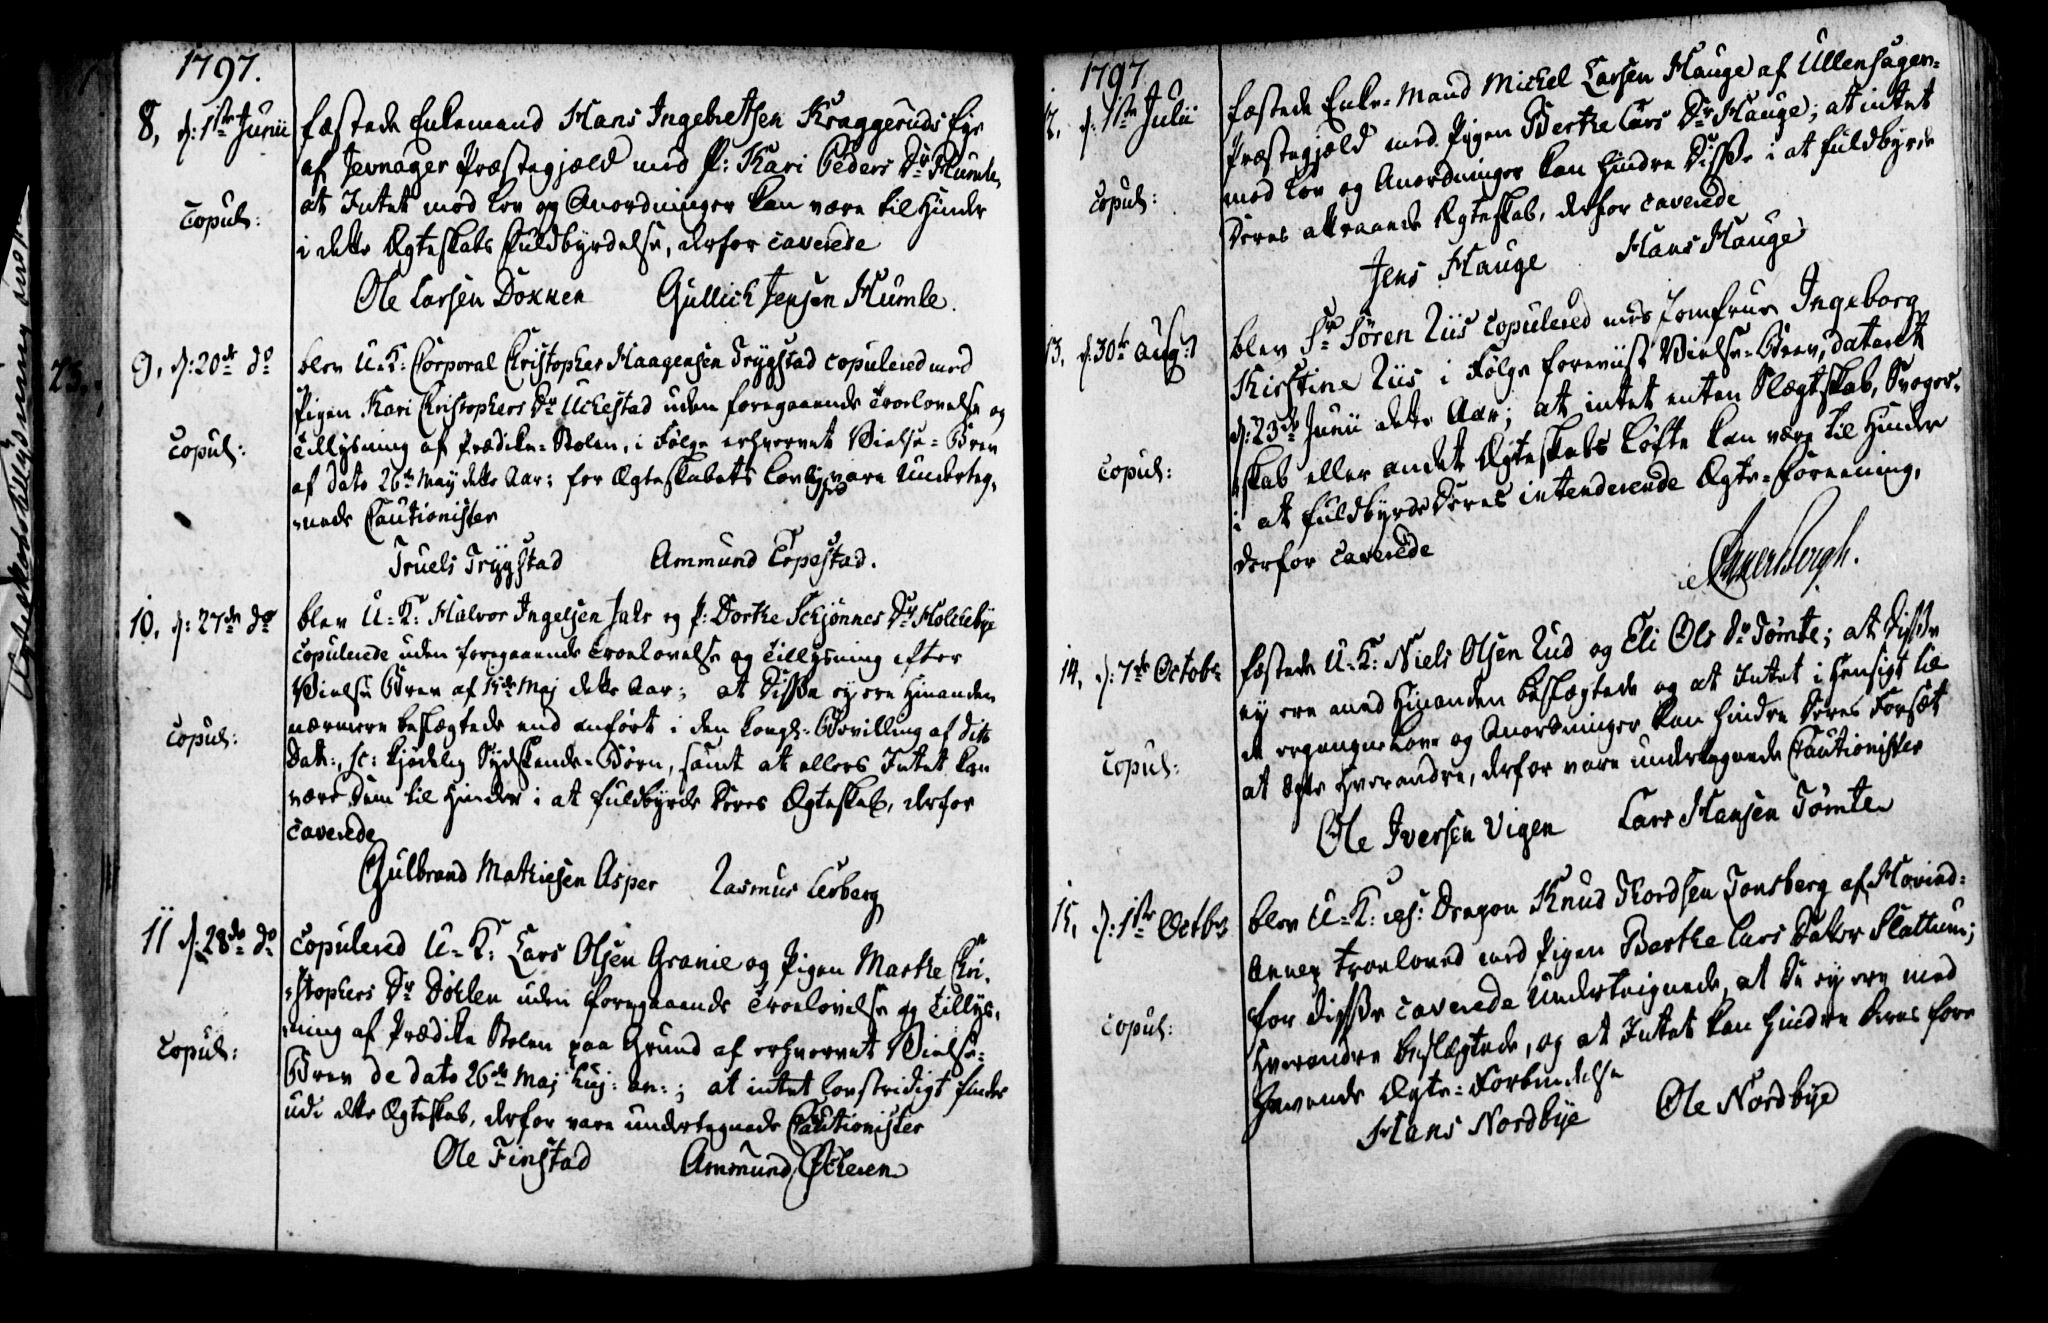 1797.
8, d: 1ste Junii
Copul:
fæstede Enkemand Hans Ingebretsen Kraggeruds Eje
af Jevnager Præstegjæld med P: Kari Peders Dr Humle,
at Intet mod Lov og Anordninger kan være til Hinder
i dette Ægteskabs Fuldbyrdelse, derfor caverede
Ole Larsen Doxnen Gullick Jensen Humle.
9, d: 20de do
Copul:
blev U-K: Corporal Christopher Haagensen Trygstad copulered med
Pigen Kari Christophers Dr Uckestad uden foregaaende Troelovelse og
Tillysning af Prædike-Stolen, i Følge erhvervet Vielse-Brev
af Dato 26de May dette Aar; for Ægteskabets Lovlighed vare Underteg-
-nede Cautionister
Truels Trygstad Ammund Topestad.
10, d: 27de do
Copul:
blev U-K: Halvor Ingelsen Jahr og P: Dorthe Schjønnes Dr Holckebye
copulerede uden foregaaende Troelovelse og Tillysning efter
Vielse Brev af 15de Maj dette Aar; at Disse ey ere Hinanden
nærmere beslægtede end anført i den Kongl: Bevilling af dette
Dato:, sc: kjødelig Sydskende-Børn, samt at ellers Intet kan
være Dem til Hinder i at fuldbyrde Deres Ægteskab, derfor
caverede
Gulbrand Mathiesen Asper Rasmus Lerberg
11 d: 28de do
Copul:
Copulered U-K: Lars Olsen Granie og Pigen Marthe Chri-
-stophers Dr Døhlen uden foregaaende Troelovelse og Tillys-
-ning af Prædike Stolen paa Grund af erhvervet Vielse-
Brev de dato 26de Maj huj: an:; at intet lovstridigt findes
udi dette Ægteskab, derfor vare undertegnede Cautionister
Ole Finstad Ammund Økeren
1797
12, d: 1ste Julii
Copul:
fæstede Enke-Mand Michel Larsen Hauge af Ullensager-
Præstegjæld med Pigen Berthe Lars Dr Hauge; at intet
mod Lov og Anordninger kan hindre Disse i at fuldbyrde
Deres attraaende Ægteskab, derfor caverede
Jens Hauge Hans Hauge
13, d: 30te Aug:
Copul:
blev Sr Søren Riis copulered med Jomfrue Ingeborg
Kirstine Riis i Følge foreviist Vielse-Brev, dateret
d: 23de Junii dette Aar; at intet enten Slægtskab, Svoger-
-skab eller andet Ægteskabs Løfte kan være til Hinder
i at fuldbyrde Deres intenderende Ægte-Foreening,
derfor caverede
14, d: 7de Octobr
Copul:
fæstede U-K: Niels Olsen Rud og Eli Ols Dr Tømte; at Disse
ey ere med Hinanden beslægtede og at Intet i Hensigt til
de ergangne Love og Anordninger kan hindre Deres Forsæt
at Ægte Hverandre, derfor vare undertegnede Cautionister
Ole Iversen Vigen Lars Hansen Tømte
15, d: 1ste Octbr
Copul:
blev U-K: res: Dragon Knud Thordsen Tonsberg af Hovind-
Annex troeloved med Pigen Berthe Lars Datter Slattum;
for Disse caverede Undertegnede, at De ey ere med
Hverandre beslægtede, og at Intet kan hindre deres fore
havende Ægte-Forbindelse
Hans Nordbye Ole Nordbye